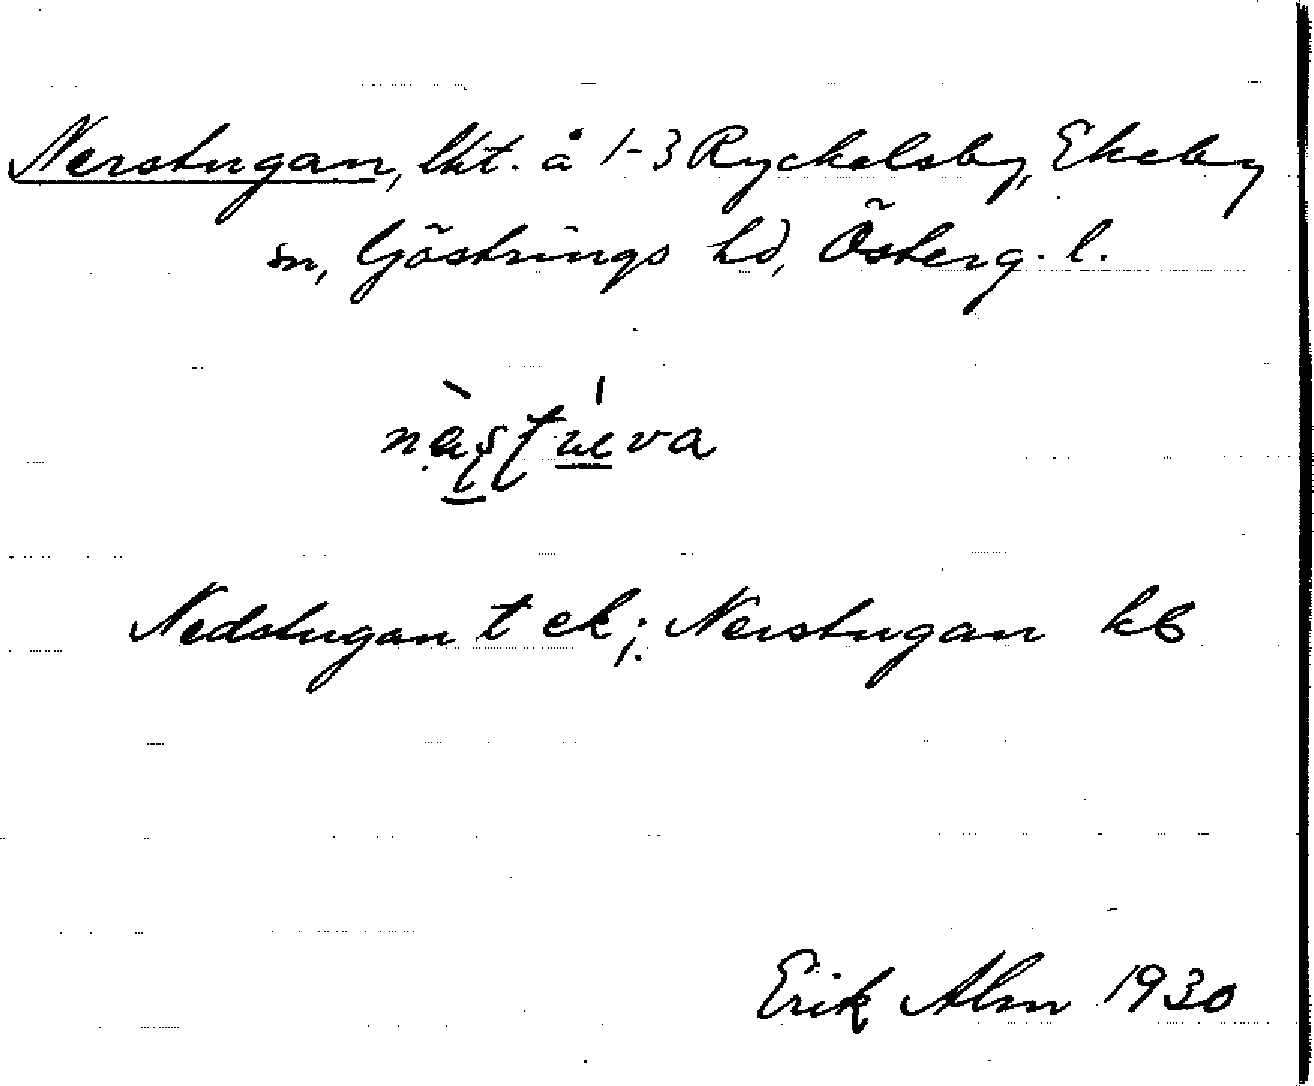 Nerstugan, lht. å 1-3 Ryckelsby, Ekeby
sn, Göstrings hd, Österg. l.
Nedstugan t ek; Nerstugan kb
Erik Alm 1930